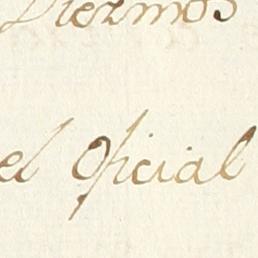 Diezmos
el Oficial